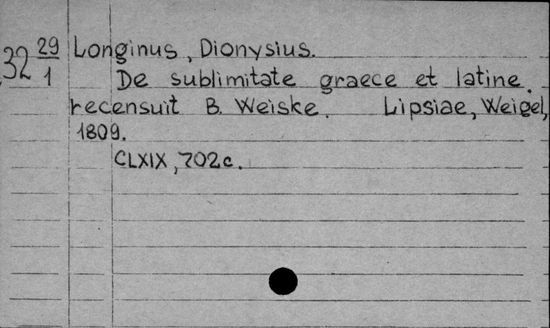 32 29/1 Longinus, Dionysius.
De sublimitate graece et latine.
recensuit B. Weiske. Lipsiae, Weigel,
1809.
CLXIX, 702c.